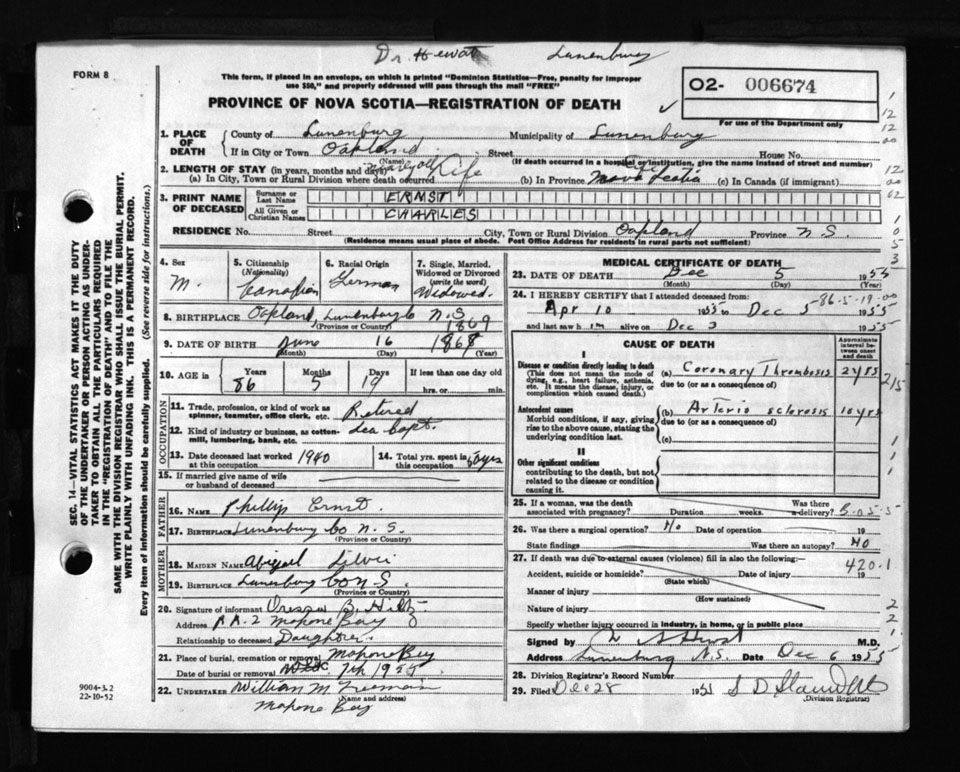 Dr. Hewat Lunenburg
FORM 8
This form, if placed in an envelope, on which is printed "Dominion Statistics—Free, penalty for improper
use $50," and properly addressed will pass through the mail "FREE"
O2- 006674
For use of the Department only
PROVINCE OF NOVA SCOTIA—REGISTRATION OF DEATH
1. PLACE OF DEATH
County of Lunenburg Municipality of Lunenburg
If in City or Town Oakland Street House No.
(Name) (If death occurred in a hospital or institution, give the name instead of street and number)
2. LENGTH OF STAY (in years, months and days)
(a) In City, Town or Rural Division where death occurred Life (b) In Province Nova Scotia (c) In Canada (if immigrant)
3. PRINT NAME OF DECEASED
Surname or Last Name ERNST
All Given or Christian Names CHARLES
RESIDENCE No. Street City, Town or Rural Division Oakland Province N S.
(Residence means usual place of abode. Post Office Address for residents in rural parts not sufficient)
4. Sex M.
5. Citizenship (Nationality) Canadian
6. Racial Origin German
7. Single, Married, Widowed or Divorced (write the word) Widowed.
8. BIRTHPLACE Oakland, Lunenburg Co N.S
(Province or Country) 1869
9. DATE OF BIRTH June 16 1868
(Month) (Day) (Year)
10. AGE in Years Months Days If less than one day old
86 5 19 hrs. or min.
OCCUPATION
11. Trade, profession, or kind of work as spinner, teamster, office clerk, etc. Retired
12. Kind of industry or business, as cotton-mill, lumbering, bank, etc. Sea Capt.
13. Date deceased last worked at this occupation 1940
14. Total yrs. spent in this occupation 50 yrs
15. If married give name of wife or husband of deceased
FATHER
16. NAME Phillip Ernst
17. BIRTHPLACE Lunenburg Co N.S.
(Province or Country)
MOTHER
18. MAIDEN NAME Abigail
19. BIRTHPLACE Lunenburg Co N S.
(Province or Country)
20. Signature of informant B. Hiltz
Address R R. 2 Mahone Bay
Relationship to deceased Daughter.
21. Place of burial, cremation or removal Mahone Bay
Date of burial or removal 7th 1955
22. UNDERTAKER William M. Freeman
(Name and address)
Mahone Bay
9004-3.2
22-10-52
SEC. 14—VITAL STATISTICS ACT MAKES IT THE DUTY
OF THE UNDERTAKER OR PERSON ACTING AS UNDER-
TAKER TO OBTAIN ALL THE PARTICULARS REQUIRED
IN THE "REGISTRATION OF DEATH" AND TO FILE THE
SAME WITH THE DIVISION REGISTRAR WHO SHALL ISSUE THE BURIAL PERMIT.
WRITE PLAINLY WITH UNFADING INK. THIS IS A PERMANENT RECORD.
Every item of information should be carefully supplied. (See reverse side for instructions.)
MEDICAL CERTIFICATE OF DEATH
23. DATE OF DEATH Dec 5 1955
(Month) (Day) (Year)
86-5-19-00
24. I HEREBY CERTIFY that I attended deceased from:
Apr 10 1955 to Dec 5 1955
and last saw him alive on Dec 3 1955
CAUSE OF DEATH
Approximate interval between onset and death
I
Disease or condition directly leading to death
(This does not mean the mode of dying, e.g., heart failure, asthenia, etc. It means the disease, injury, or complication which caused death.)
(a) Coronary Thrombosis 2 yrs
due to (or as a consequence of)
Antecedent causes
Morbid conditions, if any, giving rise to the above cause, stating the underlying condition last.
(b) Arterio sclerosis 10 yrs
due to (or as a consequence of)
(c)
II
Other significant conditions
contributing to the death, but not related to the disease or condition causing it.
25. If a woman, was the death associated with pregnancy? Duration weeks. Was there a delivery?
26. Was there a surgical operation? No Date of operation 19
State findings Was there an autopsy? NO
27. If death was due to external causes (violence) fill in also the following:
420.1
Accident, suicide or homicide? Date of injury 19
(State which)
Manner of injury
(How sustained)
Nature of injury
Specify whether injury occurred in industry, in home, or in public place
Signed by M.D.
Address Lunenburg N.S. Date Dec 6 1955
28. Division Registrar's Record Number
29. Filed Dec 28 1955
(Division Registrar)